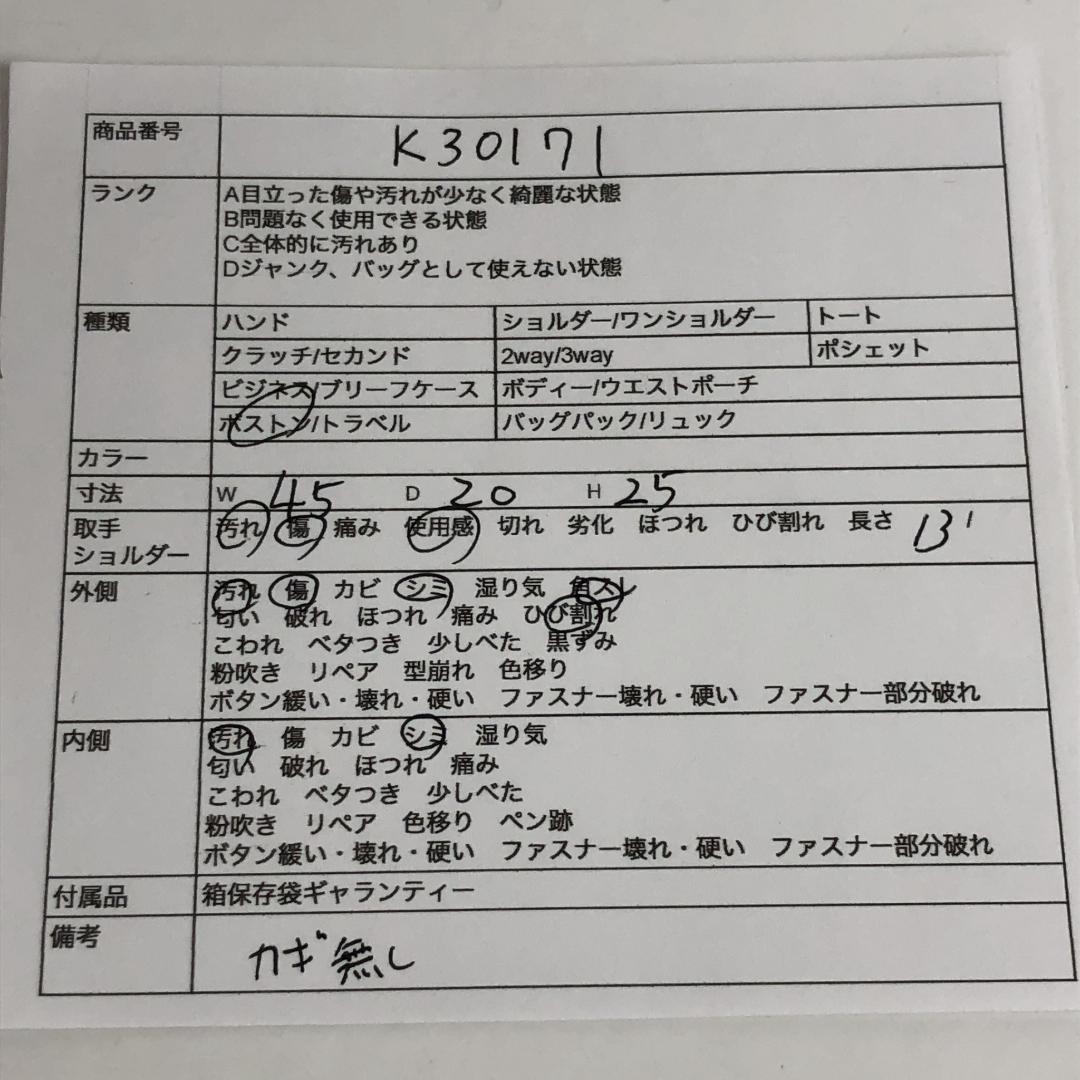 商品番号 K30171
ランク A目立った傷や汚れが少なく綺麗な状態
B問題なく使用できる状態
C全体的に汚れあり
Dジャンク、バッグとして使えない状態
種類 ハンド ショルダー/ワンショルダー トート
クラッチ/セカンド 2way/3way ポシェット
ビジネス/ブリーフケース ボディー/ウエストポーチ
ボストン/トラベル バッグパック/リュック
カラー
寸法 W 45 D 20 H 25
取手 汚れ 傷 痛み 使用感 切れ 劣化 ほつれ ひび割れ 長さ 13
ショルダー
外側 汚れ 傷 カビ シミ 湿り気 角スレ
匂い 破れ ほつれ 痛み ひび割れ
こわれ ベタつき 少しべた 黒ずみ
粉吹き リペア 型崩れ 色移り
ボタン緩い・壊れ・硬い ファスナー壊れ・硬い ファスナー部分破れ
内側 汚れ 傷 カビ シミ 湿り気
匂い 破れ ほつれ 痛み
こわれ ベタつき 少しべた
粉吹き リペア 色移り ペン跡
ボタン緩い・壊れ・硬い ファスナー壊れ・硬い ファスナー部分破れ
付属品 箱保存袋ギャランティー
備考 カギ無し